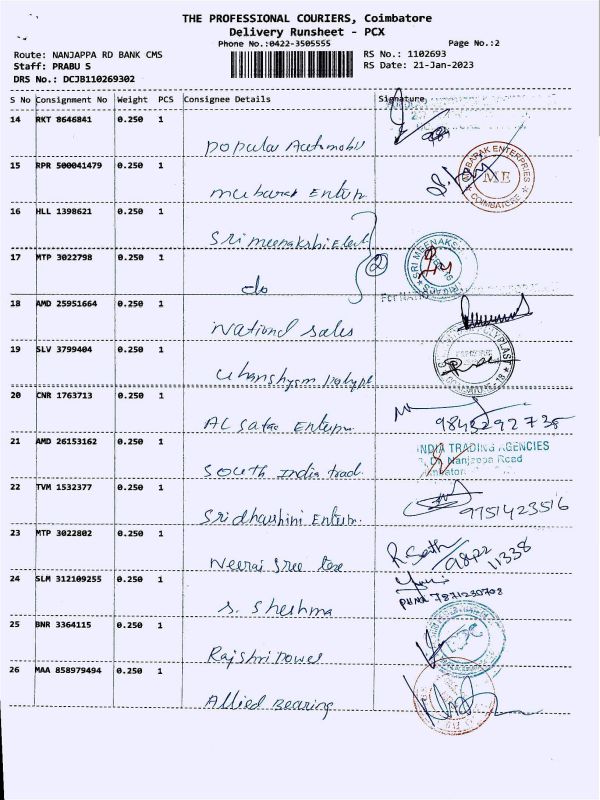 THE PROFESSIONAL COURIERS, Coimbatore
Delivery Runsheet - PCX
Phone No.:0422-3505555
Page No.:2
Route: NANJAPPA RD BANK CMS
RS No.: 1102693
Staff: PRABU S
RS Date: 21-Jan-2023
DRS No.: DCJB110269302
S No Consignment No Weight PCS Consignee Details Signature
14 RKT 8646841 0.250 1
Popular Automobil
15 RPR 500041479 0.250 1
Mubarak Enterp
MUBARAK ENTERPRIES
ME
COIMBATORE
16 HLL 1398621 0.250 1
Sri meenakshi Elect
17 MTP 3022798 0.250 1
do
2
SRI MEENAKS
18 AMD 25951664 0.250 1
National Sales
19 SLV 3799404 0.250 1
20 CNR 1763713 0.250 1
Enterp
9843292735
21 AMD 26153162 0.250 1
South India trad.
INDIA TRADING AGENCIES
Nanjappa Road
22 TVM 1532377 0.250 1
Sridharshini Enterp.
9751423516
23 MTP 3022802 0.250 1
Neeraj Sree
9842
11338
24 SLM 312109255 0.250 1
S. Sheshma
PH NO 7871230708
25 BNR 3364115 0.250 1
Rajshri Power
26 MAA 858979494 0.250 1
Allied Bearing